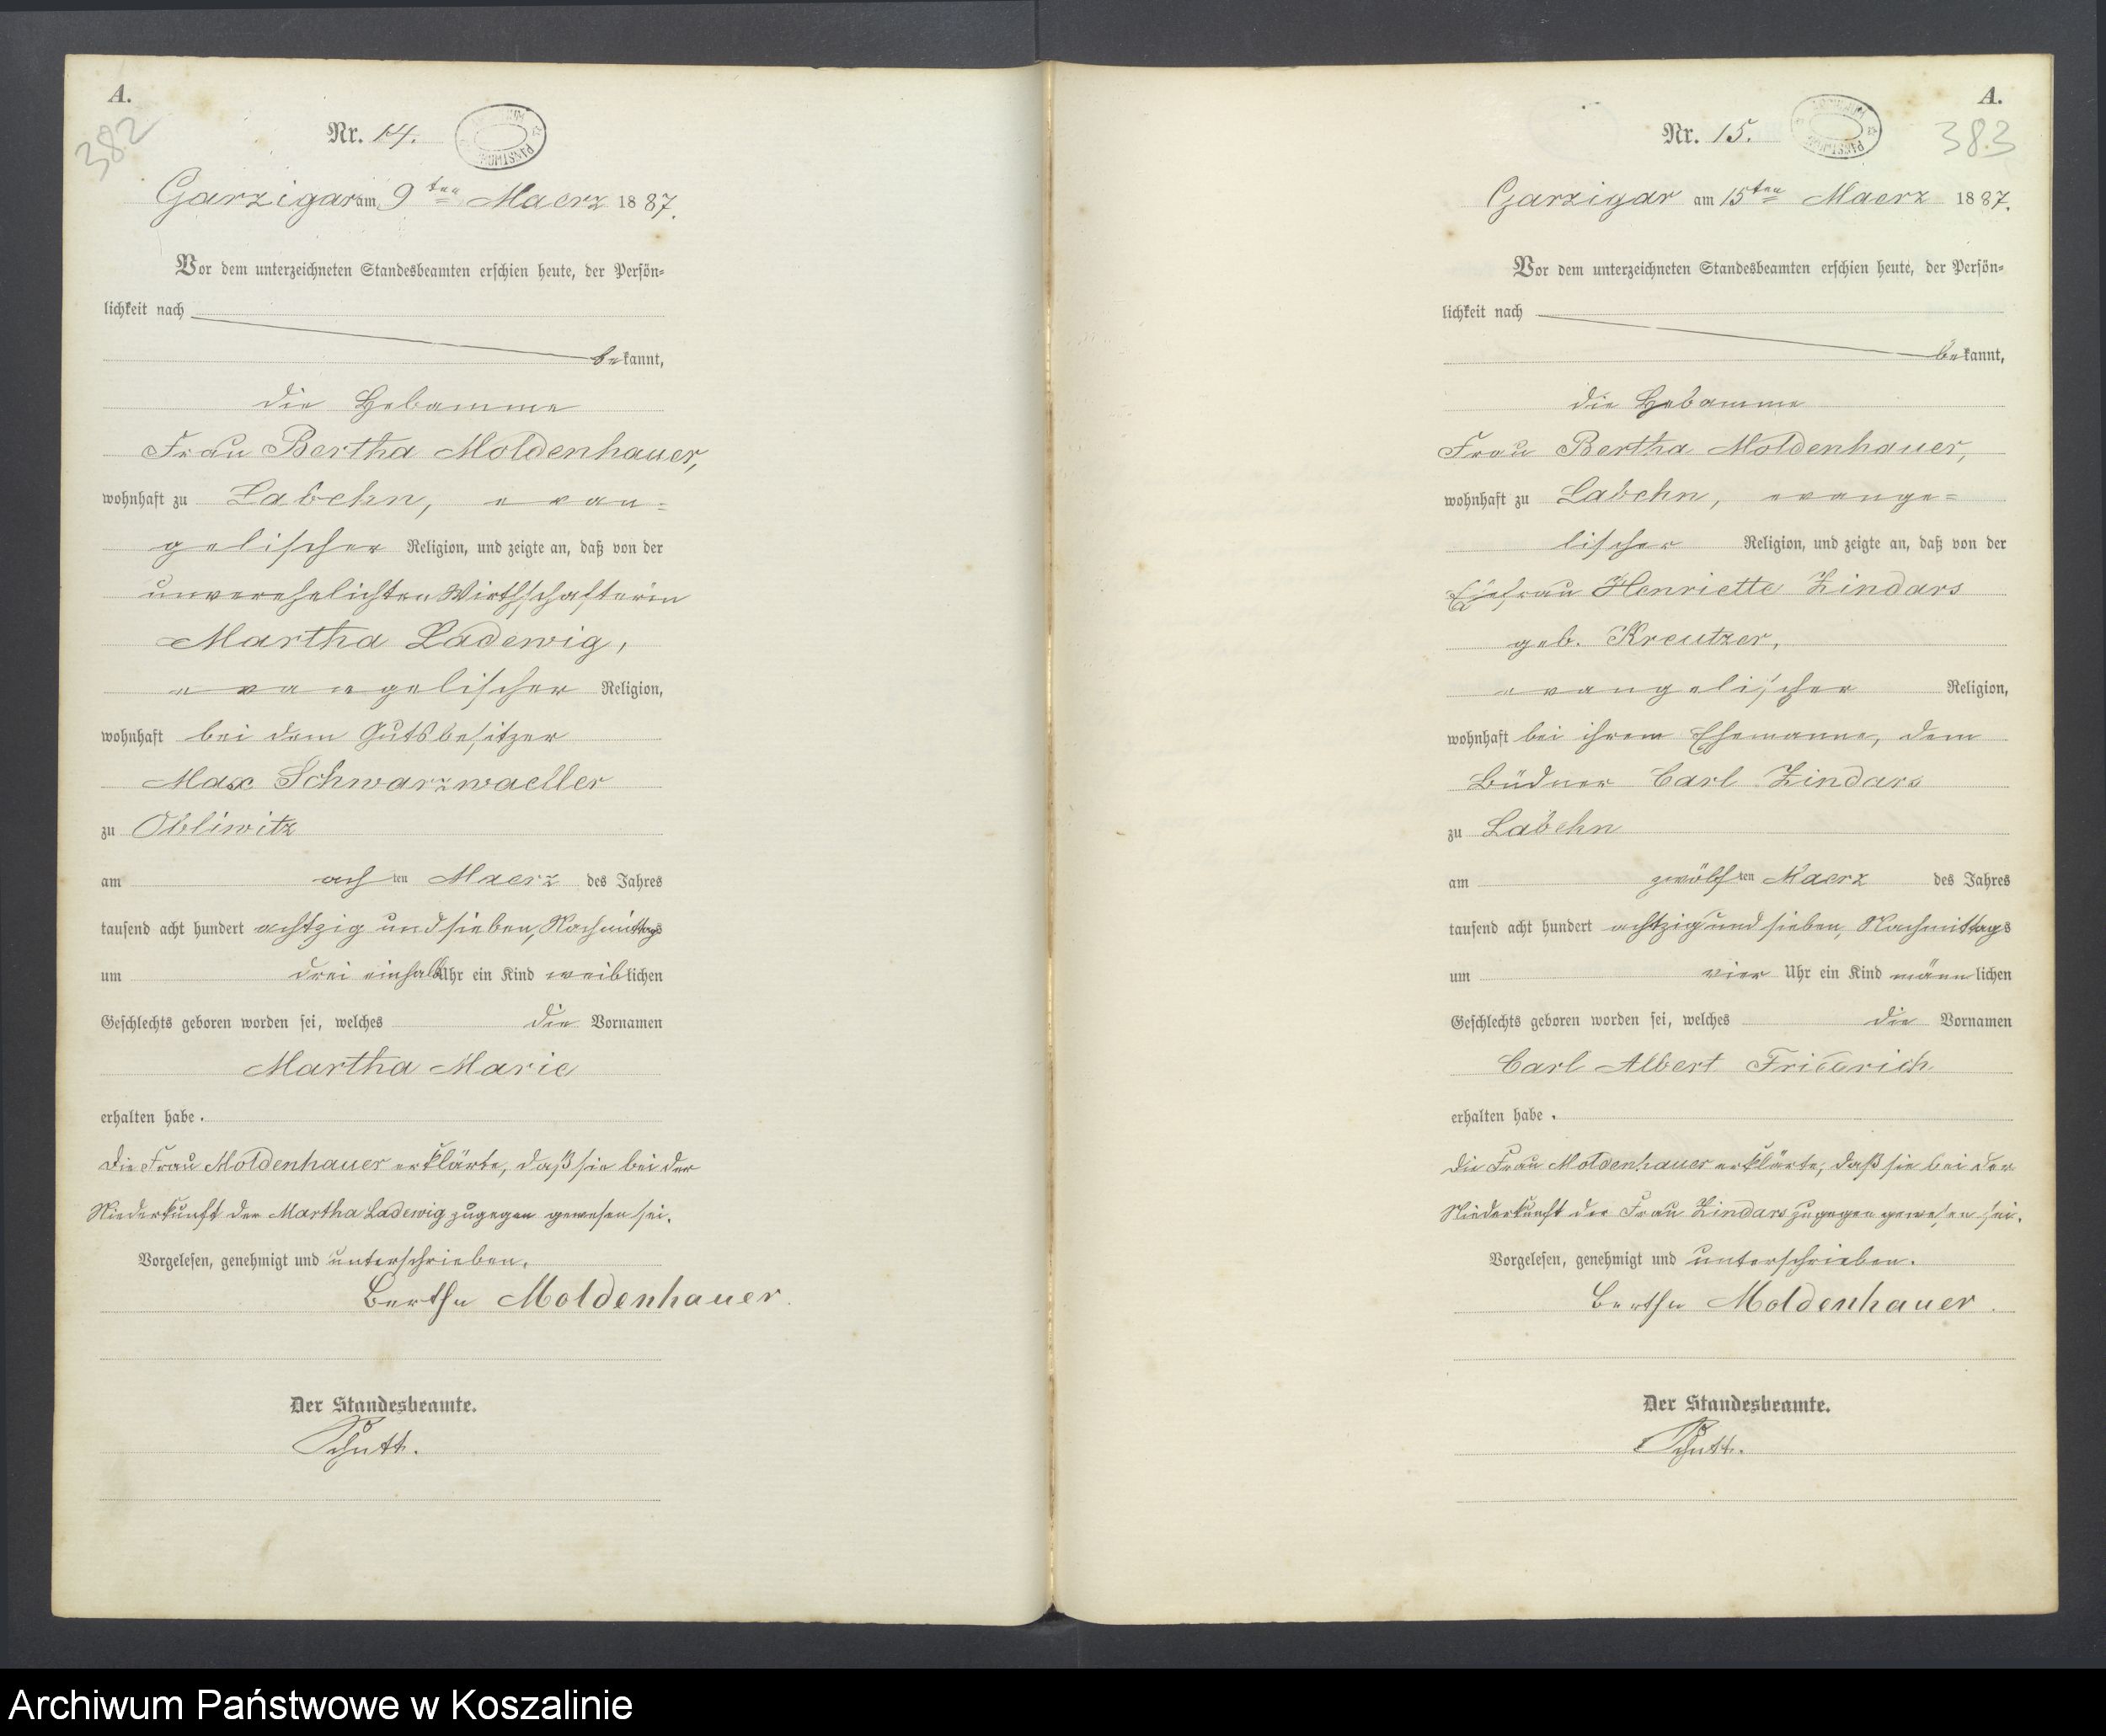 A.
382
Nr. 14.
Garzigar am 9ten Maerz 1887.
Vor dem unterzeichneten Standesbeamten erschien heute, der Persön=
lichkeit nach
bekannt,
die Hebamme
Frau Bertha Moldenhauer,
wohnhaft zu Labehn, evan=
gelischer Religion, und zeigte an, daß von der
unverehelichten Wirthschafterin
Martha Ladewig,
evangelischer Religion,
wohnhaft bei dem Gutsbesitzer
Max Schwarzwaeller
zu Obliwitz
am achten Maerz des Jahres
tausend acht hundert achtzig und sieben, Nachmittags
um drei einhalb Uhr ein Kind weiblichen
Geschlechts geboren worden sei, welches die Vornamen
Martha Marie
erhalten habe.
Die Frau Moldenhauer erklärte, daß sie bei der
Niederkunft der Martha Ladewig zugegen gewesen sei.
Vorgelesen, genehmigt und unterschrieben.
Bertha Moldenhauer.
Der Standesbeamte.
Schutt.
A.
383
Nr. 15.
Garzigar am 15ten Maerz 1887.
Vor dem unterzeichneten Standesbeamten erschien heute, der Persön=
lichkeit nach
bekannt,
die Hebamme
Frau Bertha Moldenhauer,
wohnhaft zu Labehn, evange=
lischer Religion, und zeigte an, daß von der
Ehefrau Henriette Zindars
geb. Kreutzer,
evangelischer Religion,
wohnhaft bei ihrem Ehemanne, dem
Büdner Carl Zindars
zu Labehn
am zwölften Maerz des Jahres
tausend acht hundert achtzig und sieben, Nachmittags
um vier Uhr ein Kind männlichen
Geschlechts geboren worden sei, welches die Vornamen
Carl Albert Friedrich
erhalten habe.
Die Frau Moldenhauer erklärte, daß sie bei der
Niederkunft der Frau Zindars zugegen gewesen sei.
Vorgelesen, genehmigt und unterschrieben.
Bertha Moldenhauer.
Der Standesbeamte.
Schutt.
Archiwum Państwowe w Koszalinie